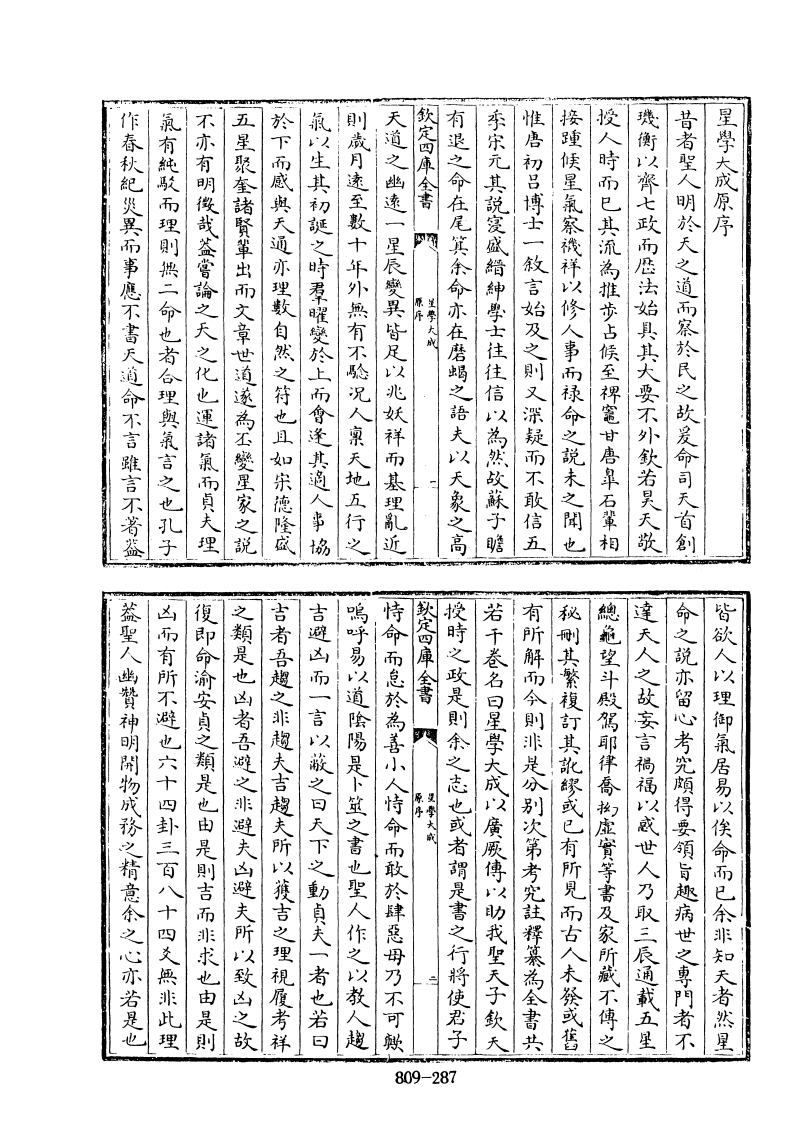 星學大成原序
昔者聖人明於天之道而察於民之故爰命司天首創
璣衡以齊七政而厯法始具其大要不外欽若昊天敬
授人時而已其流為推歩占候至裨竈甘唐臯石輩相
接踵候星氣察禨祥以修人事而祿命之説未之聞也
惟唐初吕博士一敘言始及之則又深疑而不敢信五
季宋元其説寖盛縉紳學士往往信以為然故蘇子瞻
有退之命在尾箕余命亦在磨蝎之語夫以天象之高
欽定四庫全書
星學大成
原序
一
天道之幽逺一星辰變異皆足以兆妖祥而基理亂近
則歲月逺至數十年外無有不騐況人禀天地五行之
氣以生其初誕之時羣曜變於上而會逢其適人事協
於下而感與天通亦理數自然之符也且如宋德隆盛
五星聚奎諸賢輩出而文章世道遂為丕變星家之説
不亦有明徴哉葢嘗論之天之化也運諸氣而貞夫理
氣有純駁而理則無二命也者合理與氣言之也孔子
作春秋紀災異而事應不書天道命不言雖言不著葢
皆欲人以理御氣居易以俟命而已余非知天者然星
命之説亦留心考究頗得要領旨趣病世之專門者不
達天人之故妄言禍福以惑世人乃取三辰通載五星
總龜望斗殿駕耶律喬拗虚實等書及家所藏不傳之
秘刪其繁複訂其訛繆或已有所見而古人未發或舊
有所解而今則非是分别次第考究註釋纂為全書共
若干卷名曰星學大成以廣厥傳以助我聖天子欽天
授時之政是則余之志也或者謂是書之行將使君子
欽定四庫全書
星學大成
原序
二
恃命而怠於為善小人恃命而敢於肆惡毋乃不可歟
嗚呼易以道陰陽是卜筮之書也聖人作之以教人趨
吉避凶而一言以蔽之曰天下之動貞夫一者也若曰
吉者吾趨之非趨夫吉趨夫所以獲吉之理視履考祥
之類是也凶者吾避之非避夫凶避夫所以致凶之故
復即命渝安貞之類是也由是則吉而非求也由是則
凶而有所不避也六十四卦三百八十四爻無非此理
葢聖人幽贊神明開物成務之精意余之心亦若是也
809-287